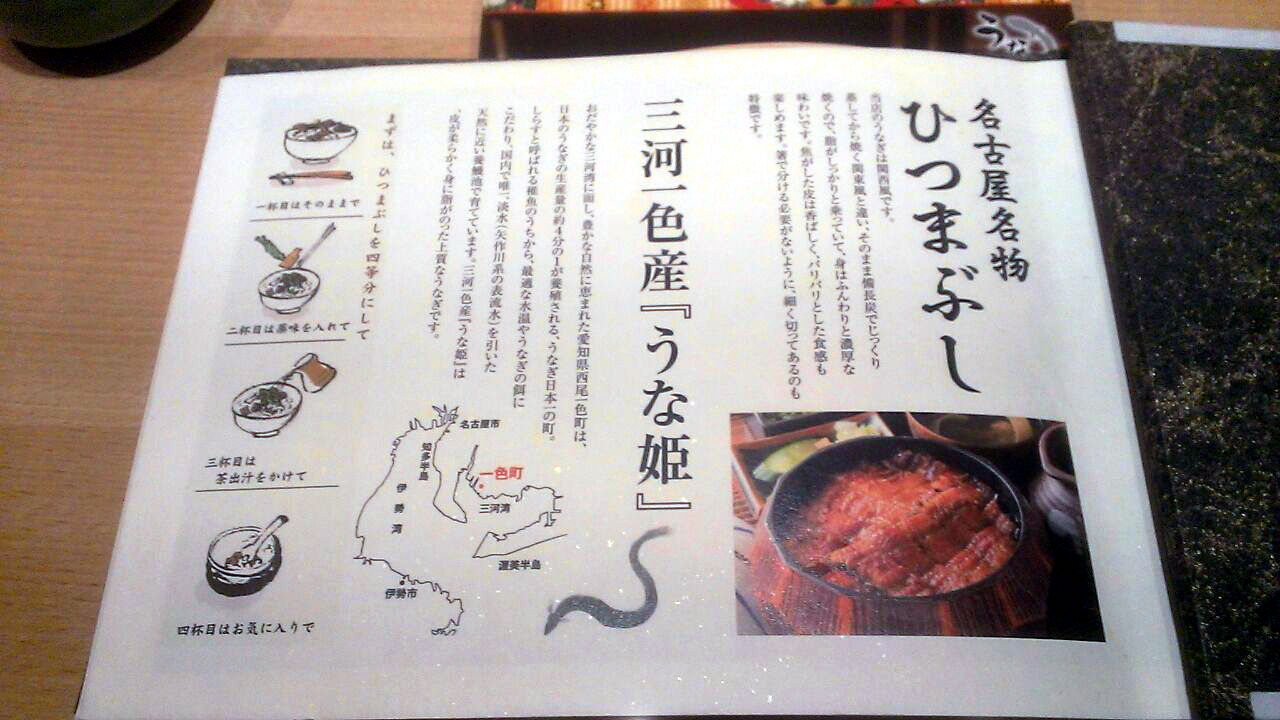 うな
名古屋名物
ひつまぶし
当店のうなぎは関西風です。
蒸してから焼く関東風と違い、そのまま備長炭でじっくり
焼くので、脂がしっかりと乗っていて、身はふんわりと濃厚な
味わいです。焦がした皮は香ばしく、パリパリとした食感も
楽しめます。箸で分ける必要がないように、細く切ってあるのも
特徴です。
三河一色産『うな姫』
おだやかな三河湾に面し、豊かな自然に恵まれた愛知県西尾一色町は、
日本のうなぎの生産量の約4分の1が養殖される、うなぎ日本一の町。
しらすと呼ばれる稚魚のうちから、最適な水温やうなぎの餌に
こだわり、国内で唯一、淡水(矢作川系の表流水)を引いた
天然に近い養鰻池で育てています。三河一色産『うな姫』は
、皮が柔らかく身に脂がのった上質なうなぎです。
名古屋市
知多半島
伊勢湾
一色町
三河湾
渥美半島
伊勢市
まずは、ひつまぶしを四等分にして
一杯目はそのままで
二杯目は薬味を入れて
三杯目は
茶出汁をかけて
四杯目はお気に入りで